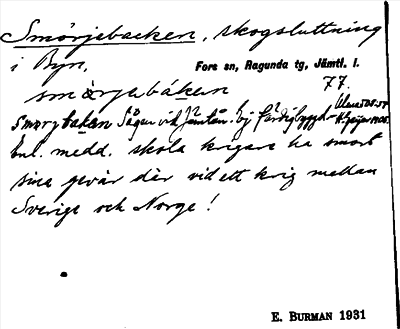 Smörjebacken, skogsluttning
i Byn, Fors sn, Ragunda tg, Jämtl. l.
77.
smörjebáken
Smörybakan Sågen vid Jämtån. Ej färdigbyggd.
Enl. medd. skola krigare ha smort
sina gevär där vid ett krig mellan
Sverige och Norge!
E. BURMAN 1931